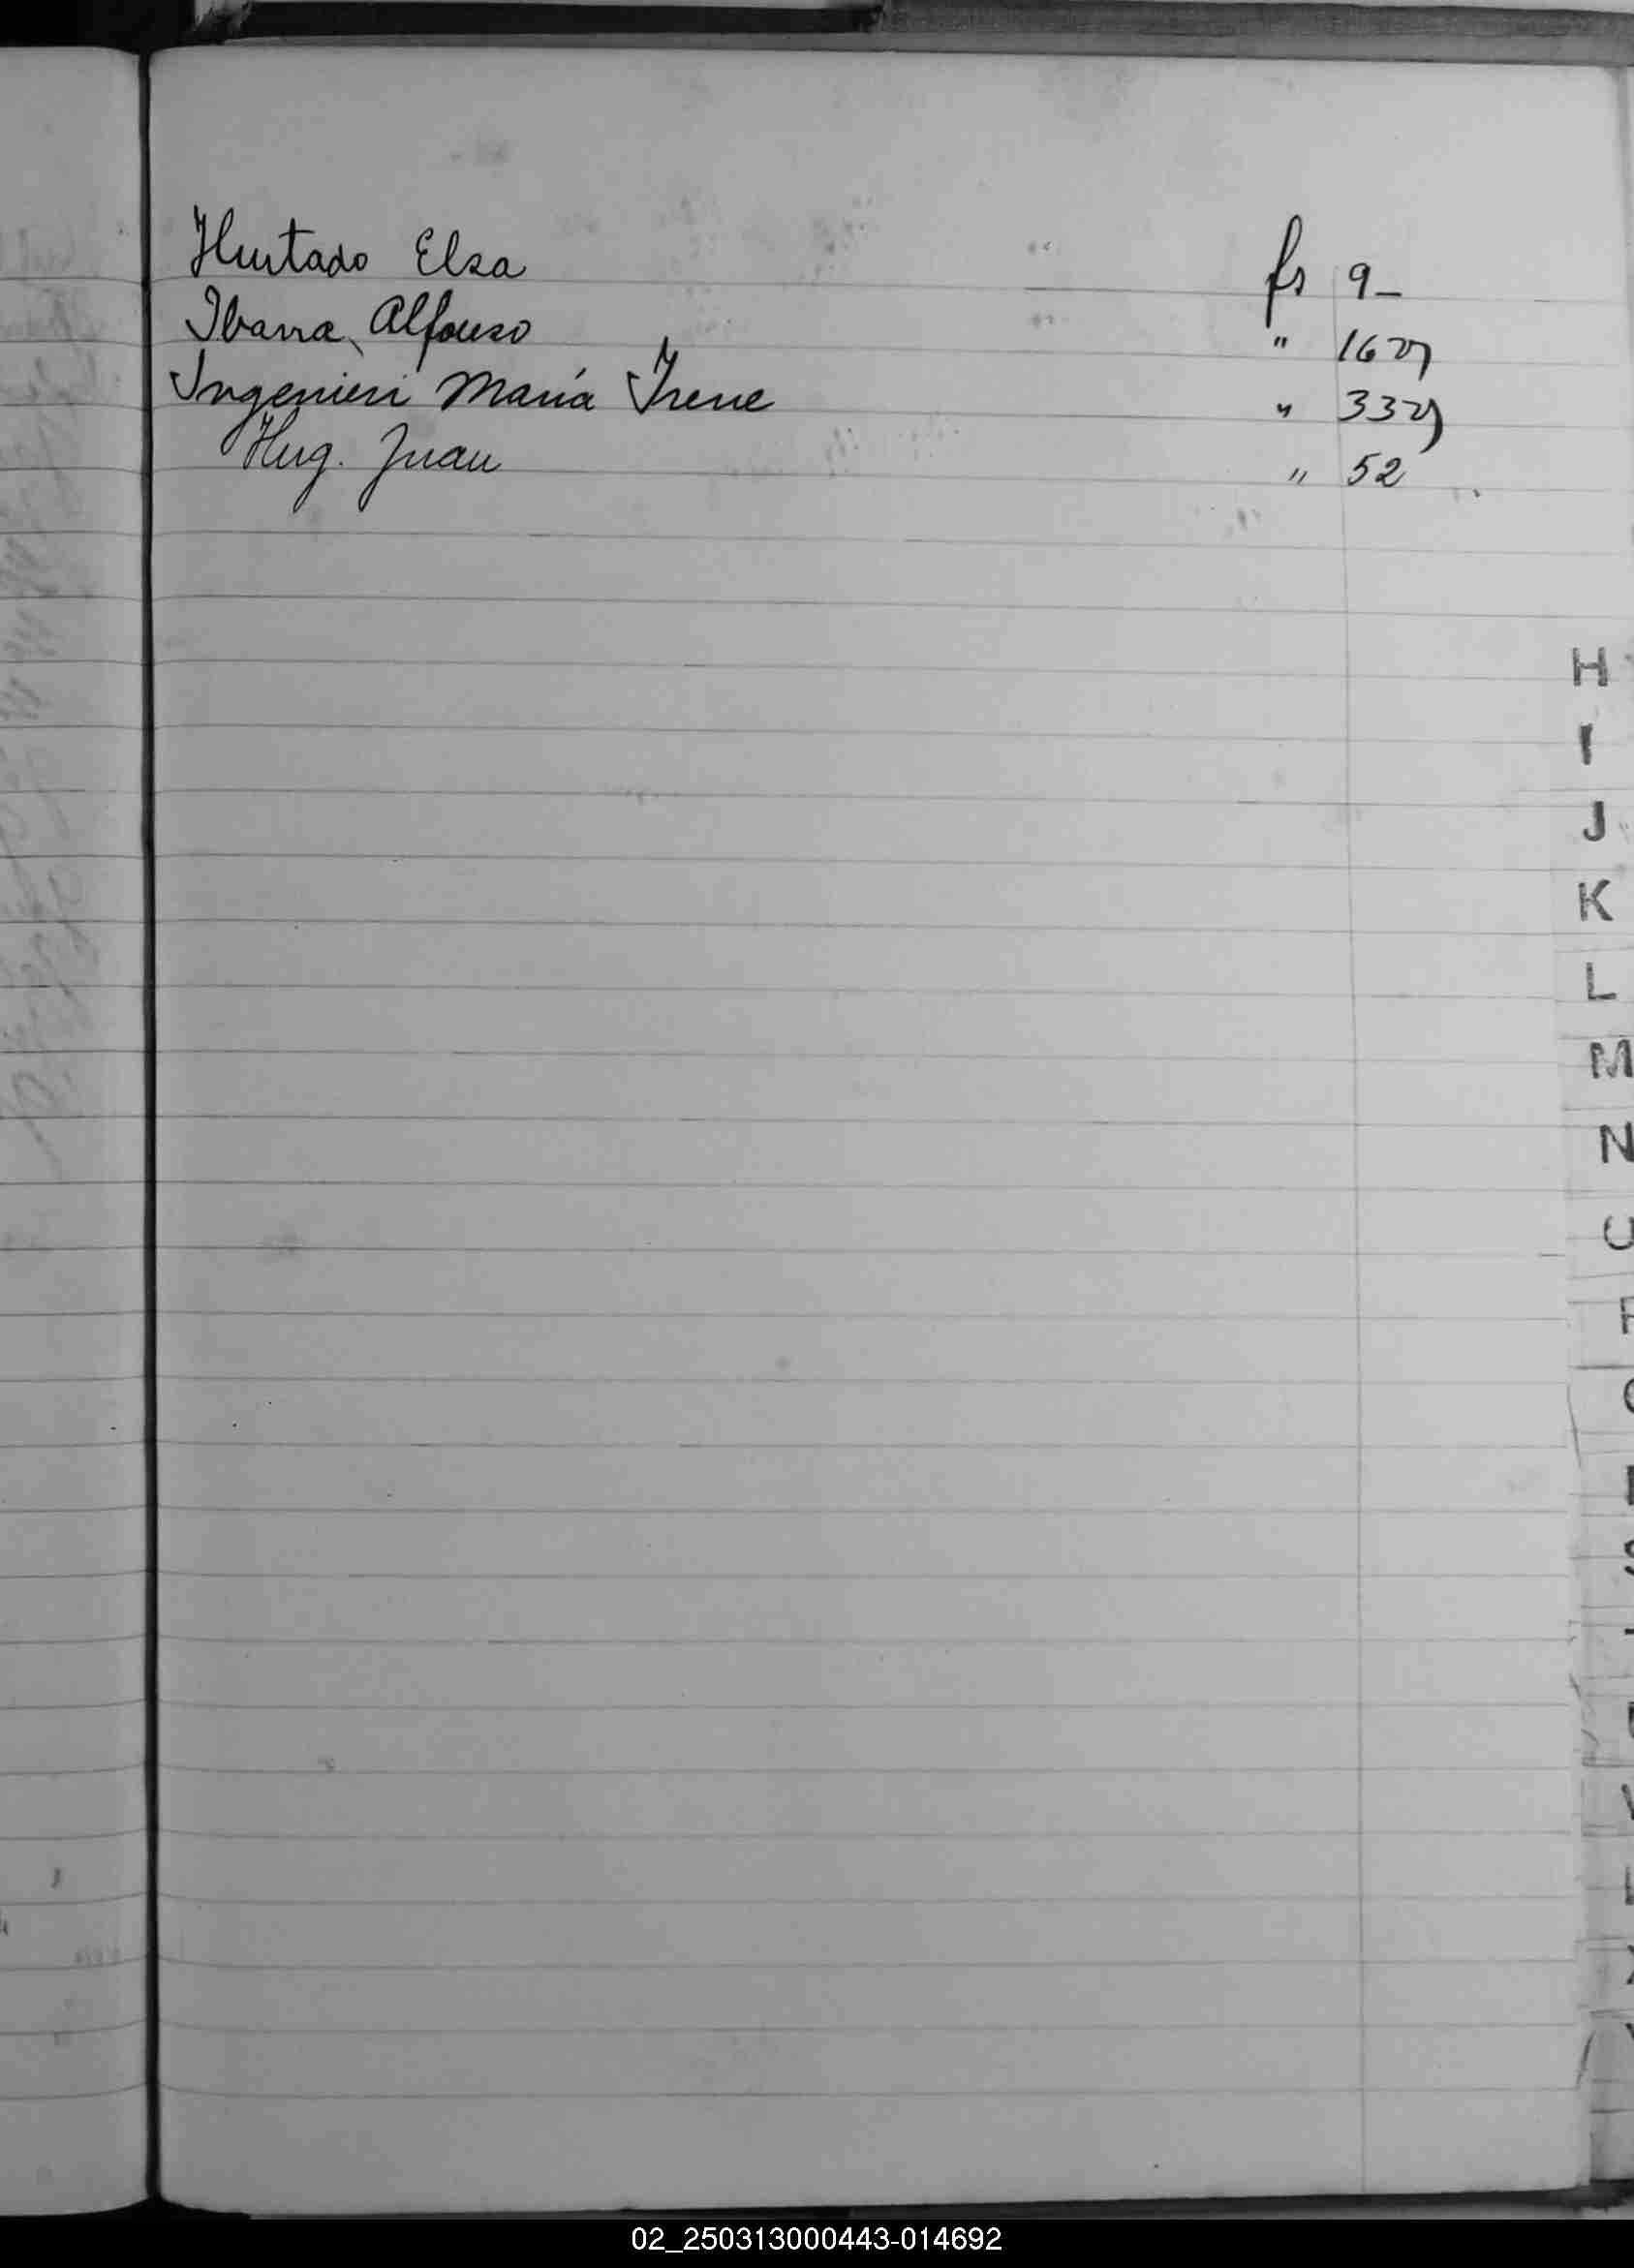 Hurtado Elsa fs 9-
Ibarra, Alfonso " 162v
Ingenieri María Irene " 332v
Hug. Juan " 52
H
I
J
K
L
M
N
02_250313000443-014692